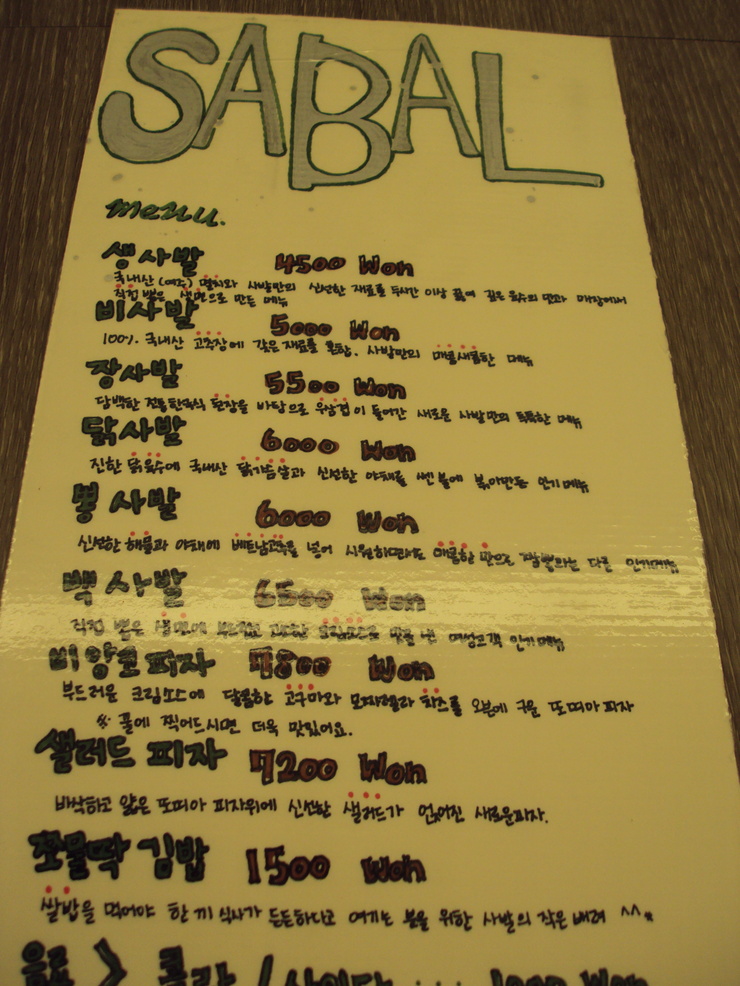 SABAL
menu.
생사발 4500 Won
국내산(여수) 멸치와 사발만의 신선한 재료를 5시간 이상 끓여 깊은 육수의 맛과 매장에서
직접 뽑은 생면으로 만든 메뉴
비사발 5000 Won
100% 국내산 고추장에 갖은 재료를 혼합. 사발만의 매콤새콤한 메뉴
장사발 5500 Won
담백한 전통한국식 된장을 바탕으로 우삼겹이 들어간 새로운 사발만의 독특한 메뉴
닭사발 6000 Won
진한 닭육수에 국내산 닭가슴살과 신선한 야채를 쎈불에 볶아만든 인기메뉴
뽕사발 6000 Won
신선한 해물과 야채에 베트남고추를 넣어 시원하면서도 매콤한 맛으로 짬뽕과는 다른 인기메뉴
백사발 6500 Won
직접 뽑은 생면에 부드럽고 크림소스로 맛을 낸 여성고객 인기메뉴
비앙코피자 7800 Won
부드러운 크림소스에 달콤한 고구마와 모짜렐라 치즈를 오븐에 구운 또띠아 피자
※ 꿀에 찍어드시면 더욱 맛있어요.
샐러드 피자 7200 Won
바삭하고 얇은 또띠아 피자위에 신선한 샐러드가 얹어진 새로운피자.
쪼물딱 김밥 1500 Won
쌀밥을 먹어야 한끼 식사가 든든하다고 여기는 분을 위한 사발의 작은 배려 ^^*
음료 > 콜라 / 사이다 1000 Won